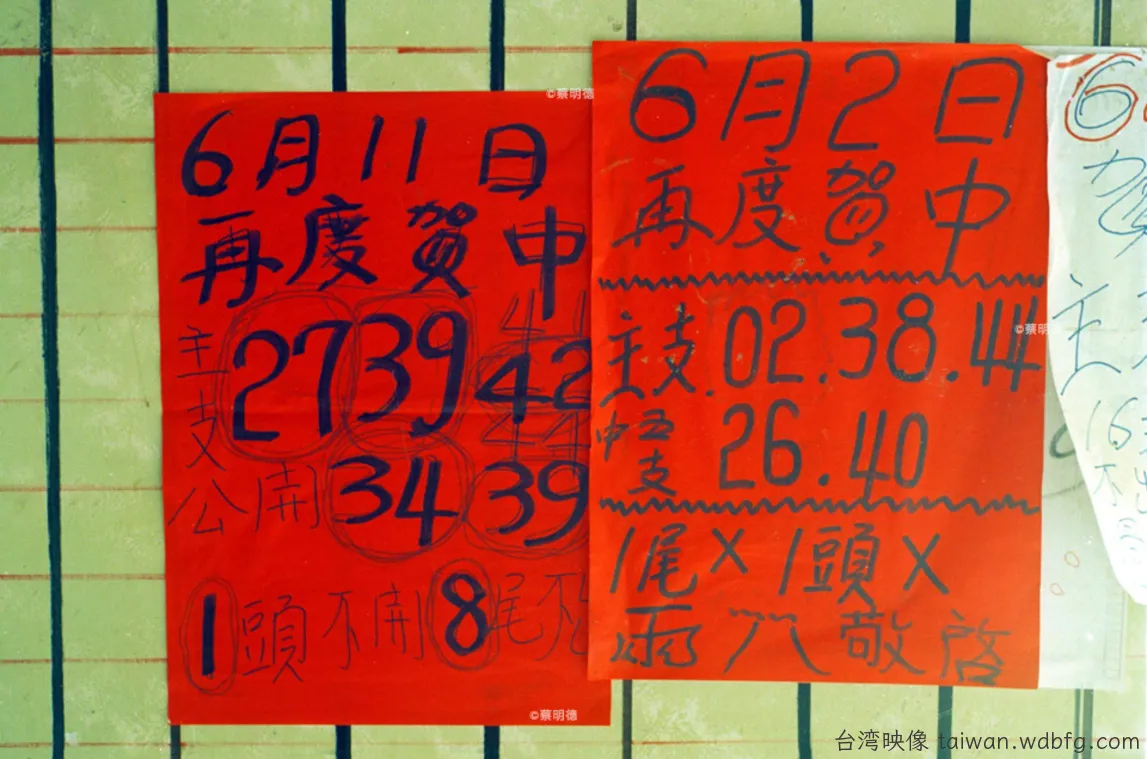 6月11日
再度賀中
主支 27 39 42
公開 34 39
1頭不開8尾不
6月2日
再度賀中
主支.02.38.44
中五支 26.40
1尾X 1頭X
雨 敬啓
6
賀
主
16
不
©蔡明德
©蔡明德
©蔡明德
台湾映像 taiwan.wdbfg.com